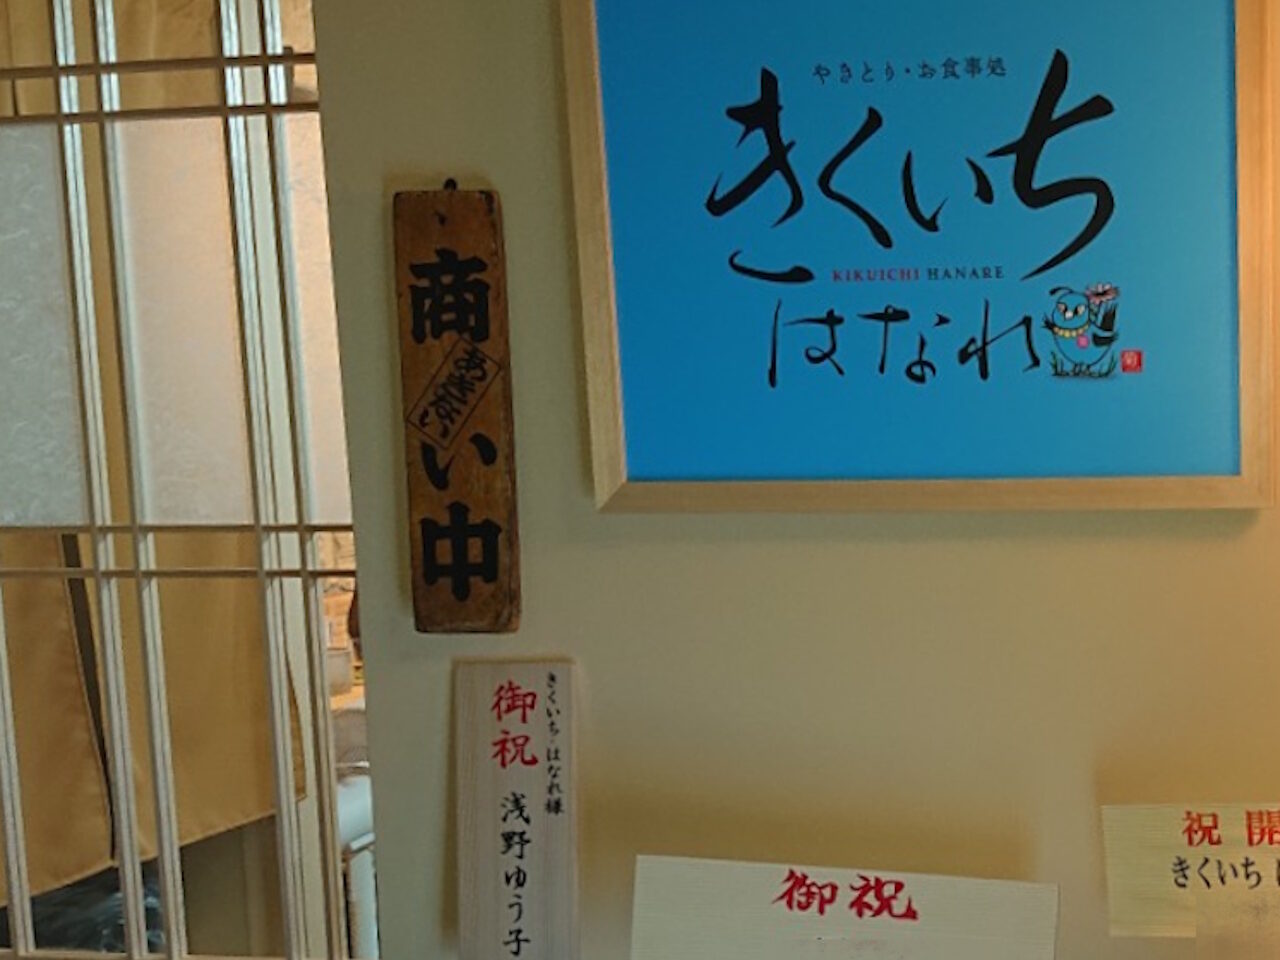 やきとり・お食事処
きくいち
KIKUICHI HANARE
はなれ
菊
商い中
あきない
きくいち・はなれ様
御祝
浅野ゆう子
御祝
祝 開
きくいち